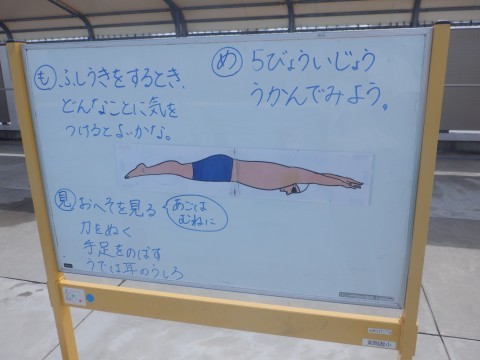 も ふしうきをするとき、
どんなことに気を
つけるとよいかな。
め 5びょういじょう
うかんでみよう。
見 おへそを見る
あごは
むねに
力をぬく
手足をのばす
うでは耳のうしろ